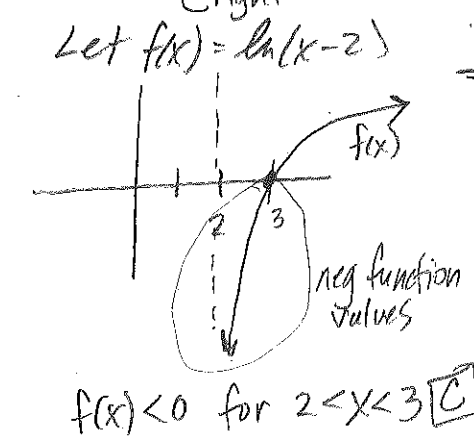 Let f(x) = ln(x-2)
f(x)
2 3
neg function
values
f(x) < 0 for 2 < x < 3 C